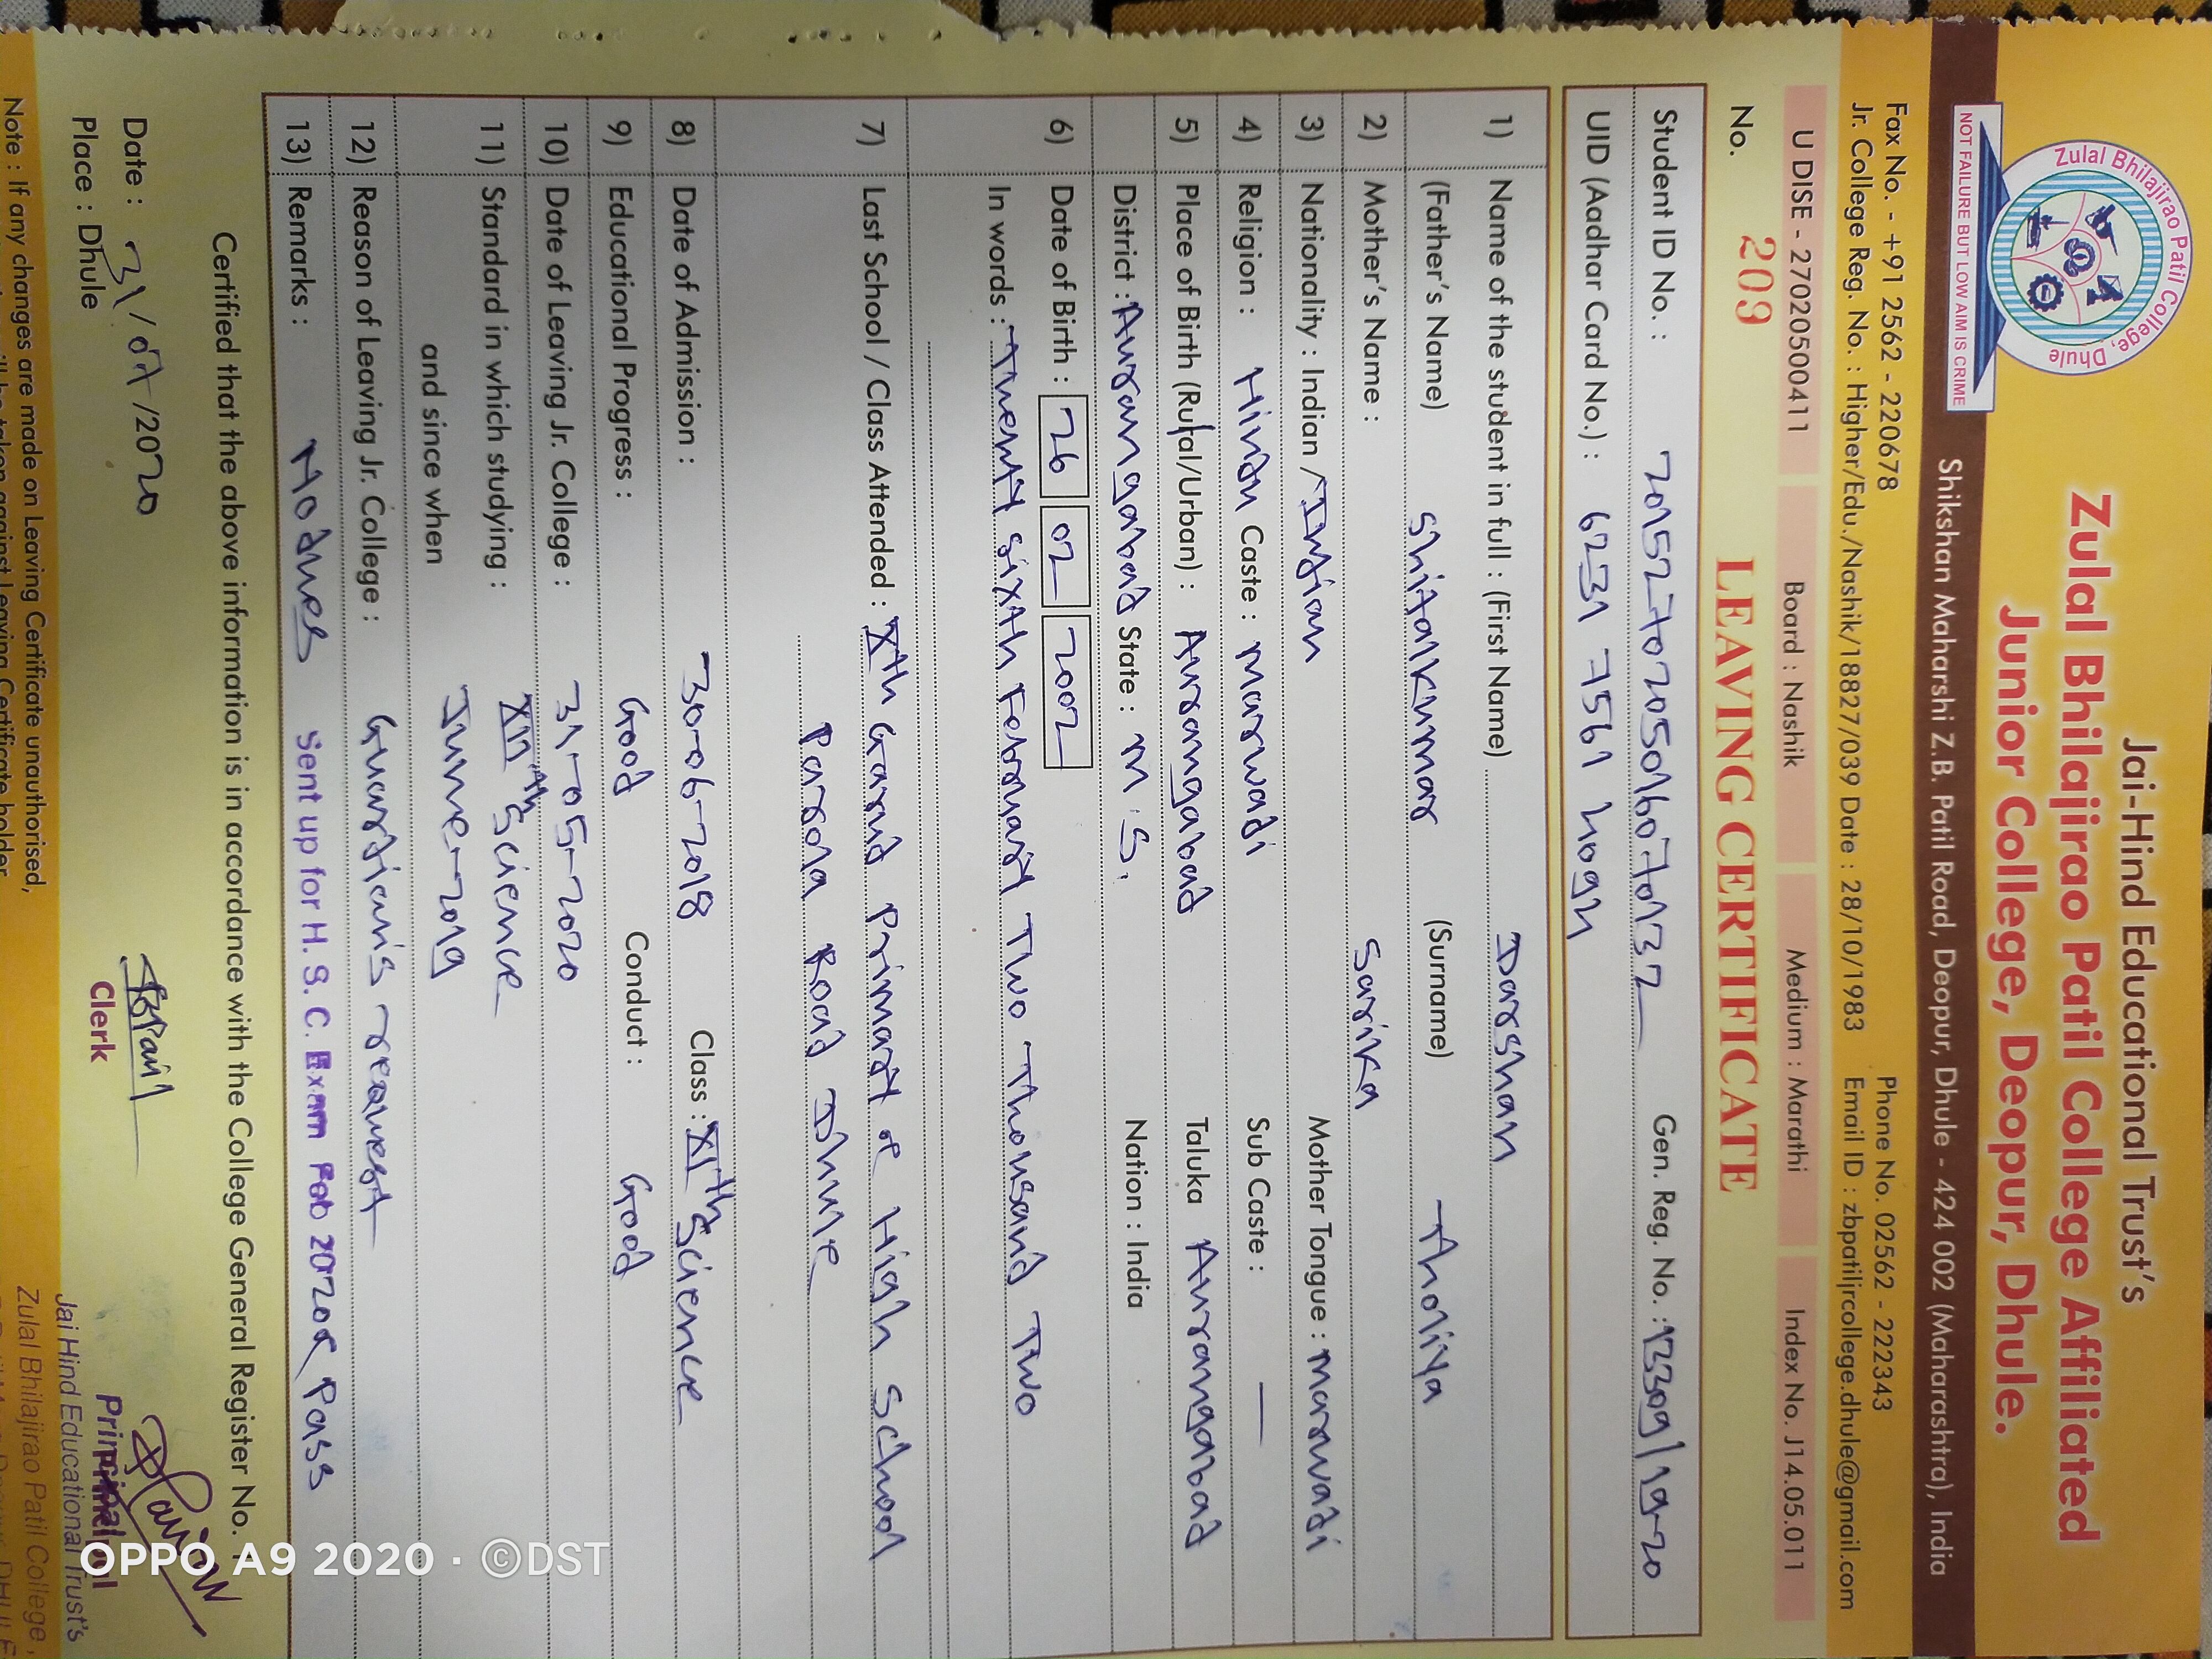 Jai-Hind Educational Trust's
Zulal Bhilajirao Patil College Affiliated
Junior College, Deopur, Dhule.
Zulal Bhilajirao Patil College, Dhule
NOT FAILURE BUT LOW AIM IS CRIME
Shikshan Maharshi Z.B. Patil Road, Deopur, Dhule - 424 002 (Maharashtra), India
Fax No. - +91 2562 - 220678 Phone No. 02562 - 222343
Jr. College Reg. No. : Higher/Edu./Nashik/18827/039 Date : 28/10/1983 Email ID : zbpatiljrcollege.dhule@gmail.com
U DISE - 27020500411 Board : Nashik Medium : Marathi Index No. J14.05.011
No. 209 LEAVING CERTIFICATE
Student ID No. : 2015270205016070132 Gen. Reg. No. : 13309/19-20
UID (Aadhar Card No.) : 6231 7561 4094
1) Name of the student in full : (First Name) Darshan
(Father's Name) Shitalkumar (Surname) Tholiya
2) Mother's Name : Sarika
3) Nationality : Indian / Indian Mother Tongue : Marwadi
4) Religion : Hindu Caste : Marwadi Sub Caste : —
5) Place of Birth (Rural/Urban) : Aurangabad Taluka Aurangabad
District : Aurangabad State : M.S. Nation : India
6) Date of Birth : 26 02 2002
In words : Twenty sixth February Two Thousand Two
7) Last School / Class Attended : Xth Garud Primary & High School
Parola Road Dhule
8) Date of Admission : 30-06-2018 Class : XIth Science
9) Educational Progress : Good Conduct : Good
10) Date of Leaving Jr. College : 31-05-2020
11) Standard in which studying : XIIth Science
and since when June-2019
12) Reason of Leaving Jr. College : Guardian's request
13) Remarks : No dues Sent up for H. S. C. Exam Feb 2020 & Pass
Certified that the above information is in accordance with the College General Register No. 1
Date : 31/07/2020
Place : Dhule
Clerk
Principal
Jai Hind Educational Trust's
Zulal Bhilajirao Patil College,
Note : If any changes are made on Leaving Certificate unauthorised,
OPPO A9 2020 · ©DST